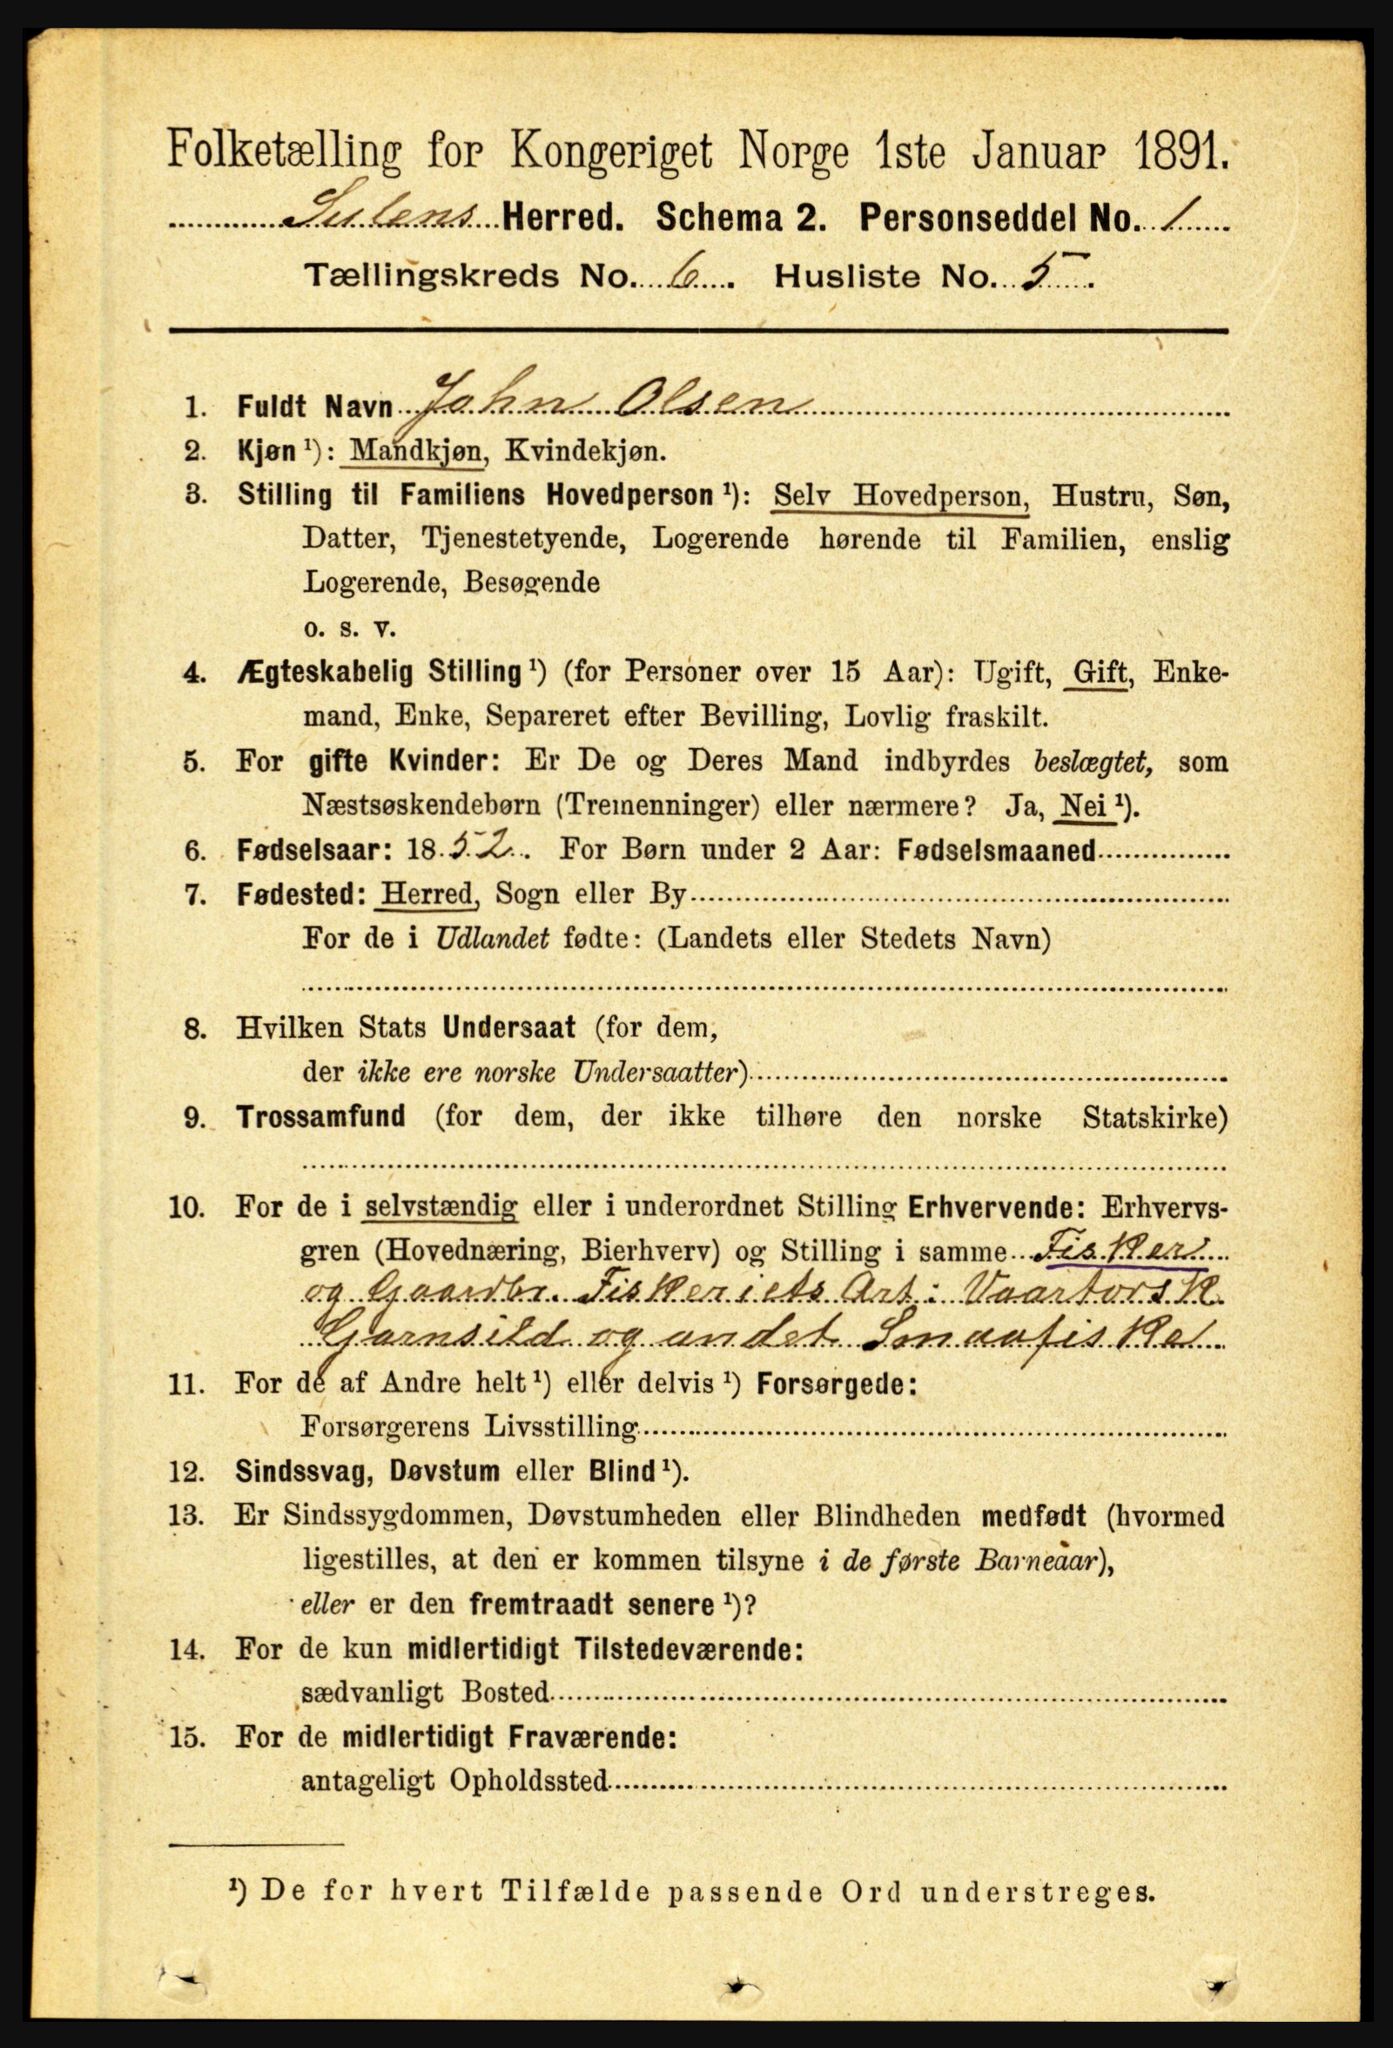 Folketælling for Kongeriget Norge 1ste Januar 1891.
Sulens Herred. Schema 2. Personseddel No. 1
Tællingskreds No. 6. Husliste No. 5.
1. Fuldt Navn John Olsen
2. Kjøn ¹): Mandkjøn, Kvindekjøn.
3. Stilling til Familiens Hovedperson ¹): Selv Hovedperson, Hustru, Søn,
Datter, Tjenestetyende, Logerende hørende til Familien, enslig
Logerende, Besøgende
o. s. v.
4. Ægteskabelig Stilling ¹) (for Personer over 15 Aar): Ugift, Gift, Enke-
mand, Enke, Separeret efter Bevilling, Lovlig fraskilt.
5. For gifte Kvinder: Er De og Deres Mand indbyrdes beslægtet, som
Næstsøskendebørn (Tremenninger) eller nærmere? Ja, Nei ¹).
6. Fødselsaar: 1852. For Børn under 2 Aar: Fødselsmaaned
7. Fødested: Herred, Sogn eller By
For de i Udlandet fødte: (Landets eller Stedets Navn)
8. Hvilken Stats Undersaat (for dem,
der ikke ere norske Undersaatter)
9. Trossamfund (for dem, der ikke tilhøre den norske Statskirke)
10. For de i selvstændig eller i underordnet Stilling Erhvervende: Erhvervs-
gren (Hovednæring, Bierhverv) og Stilling i samme Fisker
og Gaardbr. Fiskeriets Art: Vaartorsk
Garnsild og andet Smaafiske
11. For de af Andre helt ¹) eller delvis ¹) Forsørgede:
Forsørgerens Livsstilling
12. Sindssvag, Døvstum eller Blind ¹).
13. Er Sindssygdommen, Døvstumheden eller Blindheden medfødt (hvormed
ligestilles, at den er kommen tilsyne i de første Barneaar),
eller er den fremtraadt senere ¹)?
14. For de kun midlertidigt Tilstedeværende:
sædvanligt Bosted
15. For de midlertidigt Fraværende:
antageligt Opholdssted
¹) De for hvert Tilfælde passende Ord understreges.